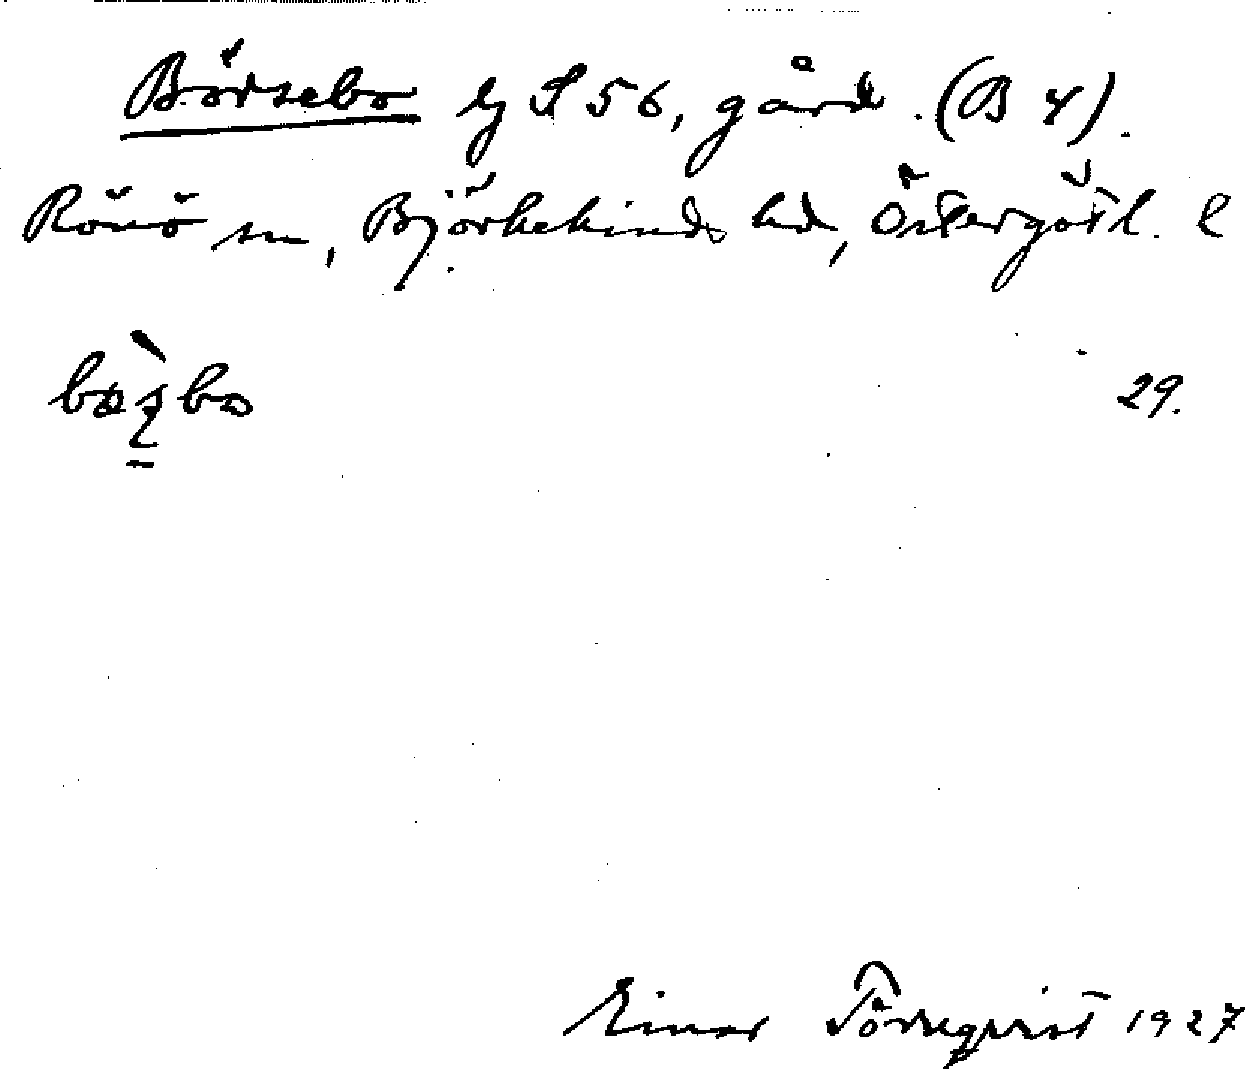 Börsebo S 56, gård. (B 4).
Rönö sn, Björkekinds hd, Östergötl. l
29.
Einar Törnqvist 1927